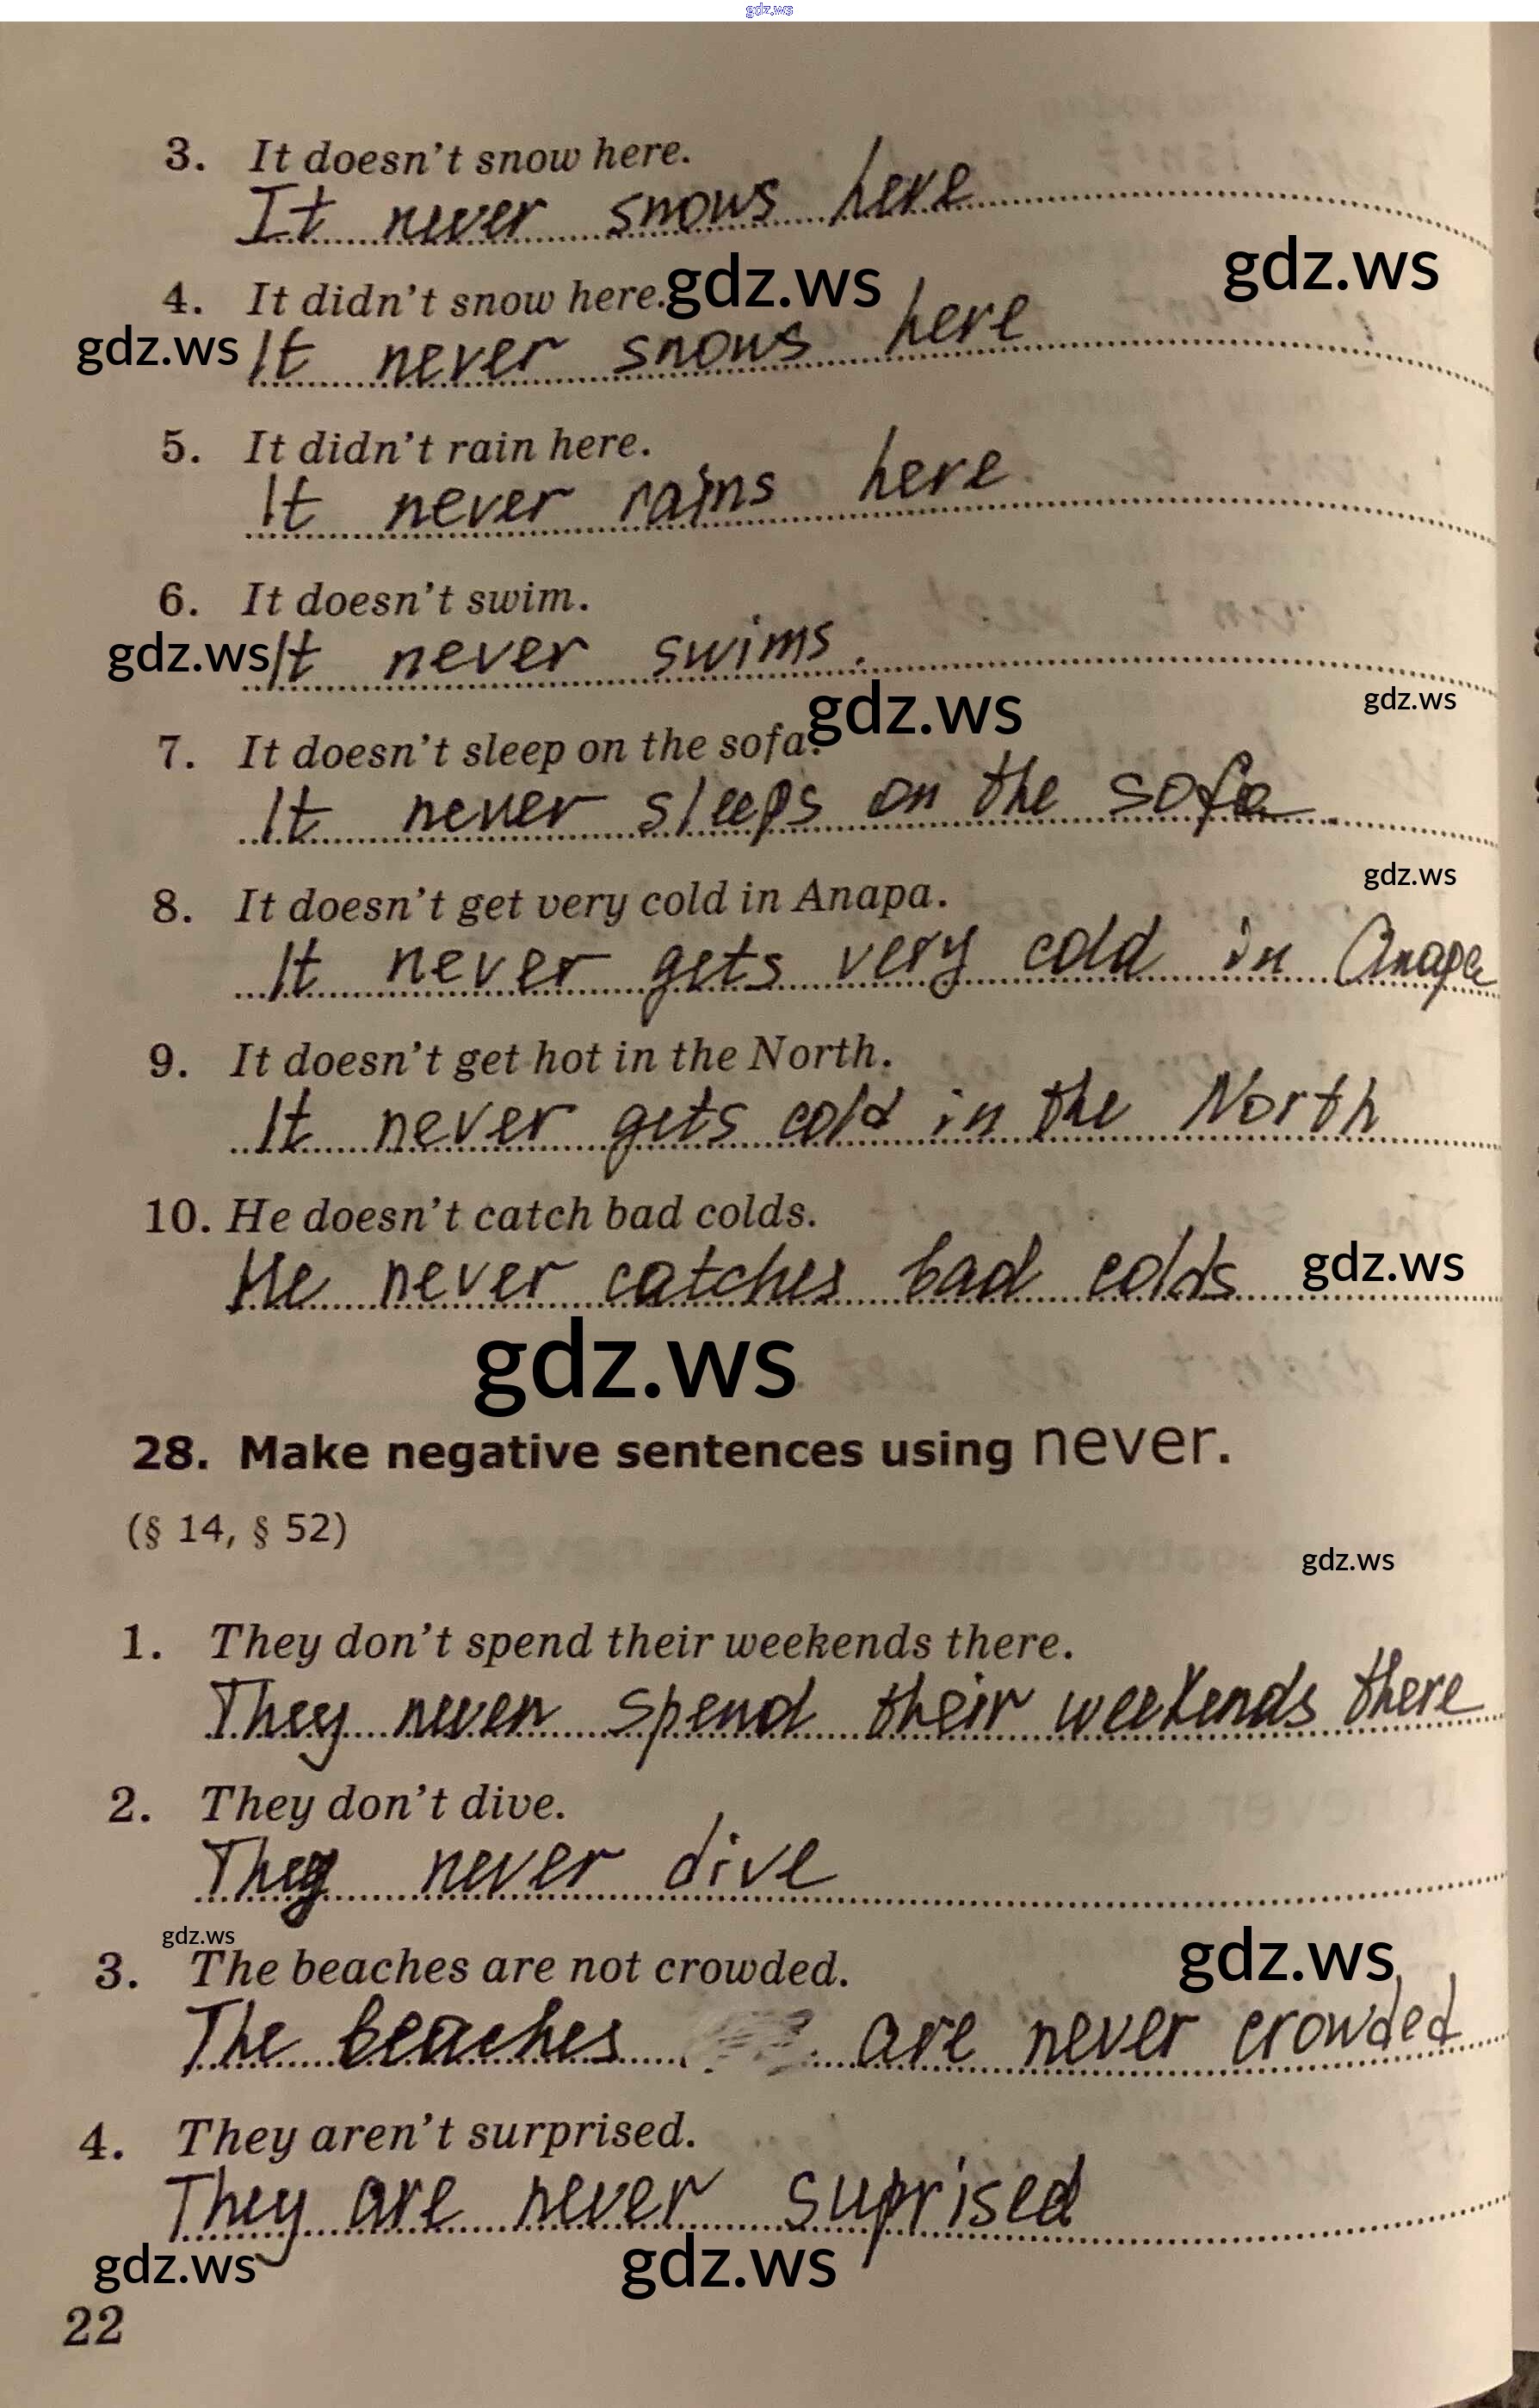 gdz.ws
3. It doesn't snow here.
It never snows here
gdz.ws
4. It didn't snow here.
gdz.ws
gdz.ws
It never snows here
5. It didn't rain here.
It never rains here
6. It doesn't swim.
gdz.ws
It never swims.
gdz.ws
gdz.ws
7. It doesn't sleep on the sofa.
It never sleeps on the sofa.
gdz.ws
8. It doesn't get very cold in Anapa.
It never gets very cold in Anapa
9. It doesn't get hot in the North.
It never gets cold in the North
10. He doesn't catch bad colds.
He never catches bad colds
gdz.ws
gdz.ws
28. Make negative sentences using never.
(§ 14, § 52)
gdz.ws
1. They don't spend their weekends there.
They never spend their weekends there
2. They don't dive.
They never dive
gdz.ws
3. The beaches are not crowded.
gdz.ws
The beaches are never crowded
4. They aren't surprised.
They are never suprised
gdz.ws
gdz.ws
22